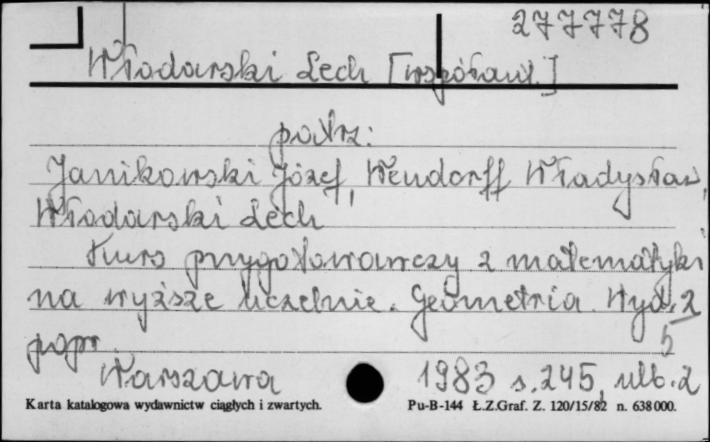 277778
Włodarski Lech [współaut.]
patrz:
Janikowski Józef, Wendorff Władysław,
Włodarski Lech
Kurs przygotowawczy z matematyki
na wyższe uczelnie. Geometria. Wyd. 2
popr. 5
Warszawa 1983 s. 245, nlb. 2
Karta katalogowa wydawnictw ciągłych i zwartych. Pu-B-144 Ł.Z.Graf. Z. 120/15/82 n. 638000.